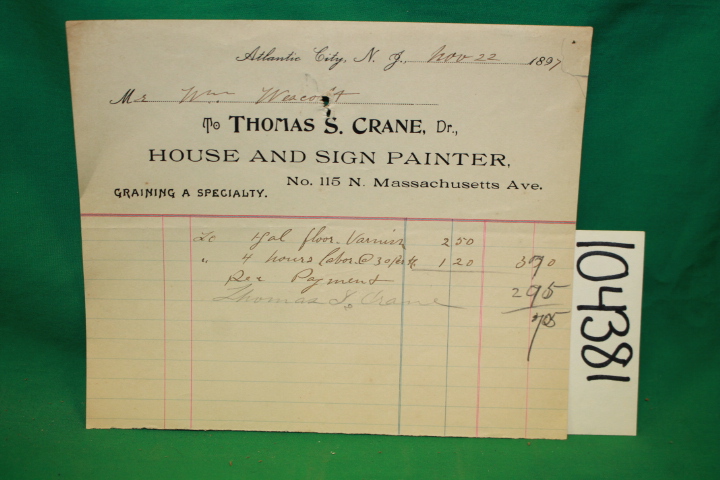 Atlantic City, N. J., Nov 22 1897
Mr Wm Wescott
To THOMAS S. CRANE, Dr.,
HOUSE AND SIGN PAINTER,
No. 115 N. Massachusetts Ave.
GRAINING A SPECIALTY.
To gal floor. Varnish 2 50
" 4 hours labor. @ 30 1 20 3 70
Rec Payment 2 95
Thomas S. Crane
75
104381